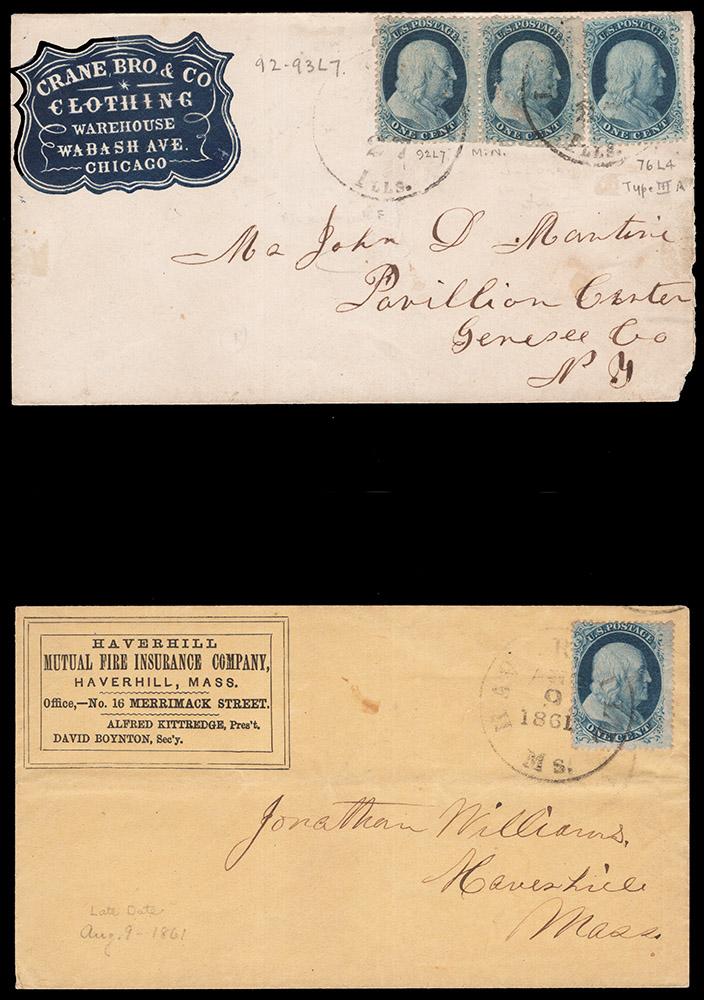 CRANE, BRO. & CO
CLOTHING
WAREHOUSE
WABASH AVE.
CHICAGO
92-93L7.
U.S. POSTAGE
ONE CENT
U.S. POSTAGE
ONE CENT
U.S. POSTAGE
ONE CENT
27
ILLS.
ILLS.
92L7
M.N.
76L4
Type III A
John D
Pavillion Center
Genesee Co
N Y
HAVERHILL
MUTUAL FIRE INSURANCE COMPANY,
HAVERHILL, MASS.
Office,—No. 16 MERRIMACK STREET.
ALFRED KITTREDGE, Pres't.
DAVID BOYNTON, Sec'y.
U.S. POSTAGE
ONE CENT
9
1861
Ms.
Jonathan Williams,
Haverhill
Mass.
Late Date
Aug. 9 - 1861